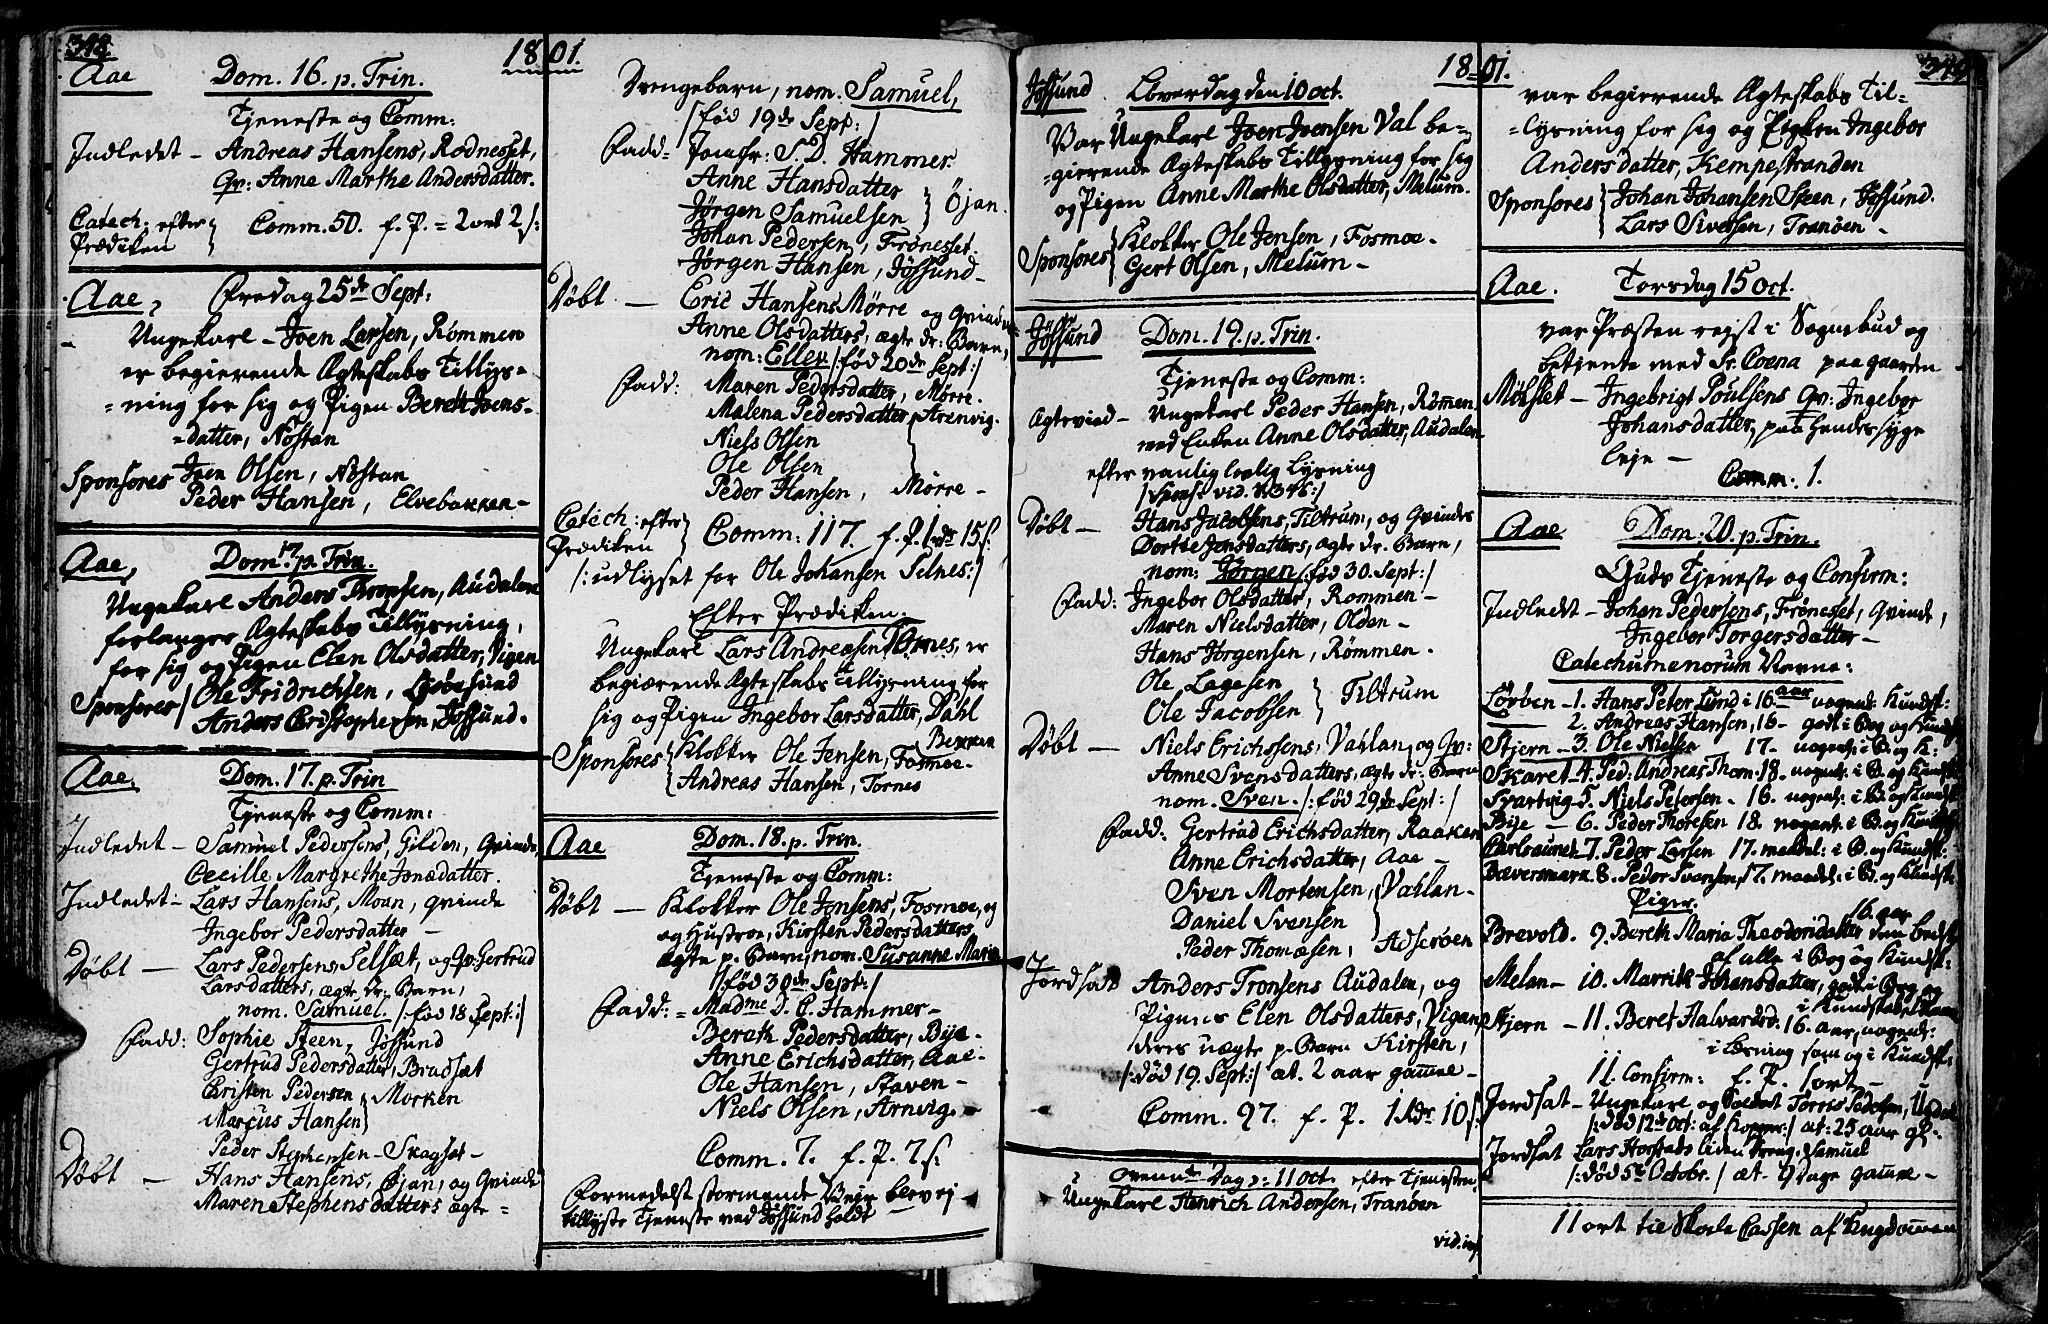 348.
1801.
Aae Dom. 16. p. Trin.
Tjeneste og Comm:
Indledet - Andreas Hansens, Rødnesset,
Qv: Anne Marthe Andersdatter.
Catech: efter Prædiken } Comm. 50. f. P. = 2 ort 2 s:
Aae, Fredag 25de Sept:
Ungekarl - Joen Larsen, Rømmen
er begierende Ægteskabs Tillys=
=ning for sig og Pigen Bereth Joens-
=datter, Nøstan
Sponsores Joen Olsen, Nøstan
Peder Hansen, Elvebakken -
Aae, Dom. 17. p. Trin.
Ungekarl Anders Tronsen, Audalen
forlanger Ægteskabs Tillysning,
for sig og Pigen Elen Olsdatter, Vigen
Sponsores / Ole Fridrichsen, Lysøesund
Anders Christophersen, Jøssund.
Aae, Dom. 17. p. Trin
Tjeneste og Comm:
Indledet - Samuel Pedersens, Gilden, Qvinde,
Cecille Margrethe Jonsdatter.
Indledet - Lars Hansens, Moan, qvinde
Ingebor Pedersdatter -
Døbt - Lars Pedersens, Selsæt, og Qv: Gertrud
Larsdatters, ægte dr: Barn,
nom. Samuel. /: fød 18 Sept:/
Fadd: Sophie Steen, Jøssund
Gertrud Pedersdatter, Bradsæt
Christen Pedersen } Morken
Marcus Hansen
Peder Stephensen - Skagset -
Døbt - Hans Hansens, Øjan, og Qvinde
Maren Stephensdatters ægte =
Drengebarn, nom. Samuel,
/fød 19de Sept:/
Fadd = Jomfr: S. D. Hammer
Anne Hansdatter
Jørgen Samuelsen } Øjan.
Johan Pedersen, Frønesset
Jørgen Hansen, Jøssund -
Døbt - Eric Hansens Mørre og Qvinde
Anne Olsdatters, ægte dr: Barn,
nom: Ellev /: fød 20de Sept:/
Fadd: Maren Pedersdatter, Mørre.
Malena Pedersdatter, Arenvig.
Niels Olsen
Ole Olsen
Peder Hansen, Mørre -
Catech: efter Prædiken } Comm: 117. f. P. 1 dr 15 s:
/: udlyset for Ole Johansen Selnes:/
Efter Prædiken.
Ungekarl Lars Andreasen Tørnes, er
begiærende Ægteskabs Tillysning for
sig og Pigen Ingebor Larsdatter, Dahl
Bekken
Sponsores { Klokker Ole Jensen, Fosmoe.
Andreas Hansen, Tornes
Aae Dom. 18. p. Trin.
Tjeneste og Comm:
Døbt - Klokker Ole Jensens, Fosmoe, og
og Hustroe, Kirsten Pedersdatters,
Ægte p. Barn, nom. Susanne Maria
/ fød 30de Sept:/
Fadd: = Madme D. C. Hammer -
Bereth Pedersdatter, Bye -
Anne Erichsdatter, Aae -
Ole Hansen, Staven -
Niels Olsen, Arnvig.
Comm. 7. f. P. 7 s:
Formedelst stormende Vejr blev ej
tillyste Tjeneste ved Jøssund holdt
1801.
349
Jøssund Løverdag den 10 oct.
Var Ungekarl Joen Joensen Val be-
=gierende Ægteskabs Tillysning for sig
og Pigen Anne Marthe Olsdatter, Melum.
Sponsores { Klokker Ole Jensen, Fosmoe -
Gert Olsen, Melum -
Jøssund Dom. 19. p. Trin.
Tjeneste og Comm:
Ægteviet - Ungekarl Peder Hansen, Rømen.
med Enken Anne Olsdatter, Audalen
efter vanlig lovlig Lysning
/ Spons: vid. N 346:/
Døbt - Hans Jacobsens, Tiltrum, og Qvindes
Dortte Jensdatters, ægte dr. Barn,
nom: Jørgen /: fød 30. Sept:/
Fadd: Ingebor Olsdatter, Rommen -
Maren Nielsdatter, Olden -
Hans Jørgensen, Rømmen.
Ole Lagesen
Ole Jacobsen } Tiltrum
Døbt - Niels Erichsens, Vahlan, og Qv:
Anne Svensdatters, ægte dr: Barn
nom. Sven. /: fød 29de Sept:/
Fadd: Gertrud Erichsdatter, Raaken
Anne Erichsdatter, Aae -
Sven Mortensen, Vahlan -
Daniel Svensen
Peder Thomæsen, Adserøen
Jordsat Anders Tronsens Audalen, og
Pigens Elen Olsdatters, Vigan
deres uægte p. Barn Kirsten,
/: død 19. Sept:/ æt. 2 aar gamle -
Comm. 97. f. P. 1 dr 10 s.
Ovennte Dag: 11 Oct. efter Tjenesten
Ungekarl Henrich Andersen, Tranøen
vid. inf.
var begierende Ægteskabs Til=
=lysning for sig og Pigen Ingebor
Andersdatter, Kempestranden
Sponsores { Johan Johansen Steen, Jøssund.
Lars Siversen, Tranøen -
Aae. Torsdag 15 oct.
var Præsten rejst i Sognebud og
betjente med Sr. Coena paa gaarden
Mølslet - Ingebrigt Poulsens Qv: Ingebor
Johansdatter, paa hendes syge
leje -
Comm: 1.
Aae Dom: 20. p. Trin.
Guds Tjeneste og Confirm:
Indledet - Johan Pedersens, Frønesset, Qvinde,
Ingebor Torgersdatter -
Catechumenorum Navne:
Lørben - 1. Hans Peter Lund i 16 aar nogend: Kundsk:
2. Andreas Hansen, 16 - godt i Bog og Kundsk
Stjern - 3. Ole Nielsen 17 - nogend: i B. og K:
Skaret - 4. Ped: Andreas Thom: 18. nogend: i B. og Kundsk
Svartvig 5. Niels Petersen - 16. nogend: i B. og Kundsk
Bye - 6. Peder Thoresen 18. nogend: i B. og Kundsk
Carlsaunet - 7. Peder Larsen 17. maadel: i B. og Kundsk:
Bævermark. 8. Peder Ivarsen, 17. maadel: i B. og Kundsk
Piger.
16. aar
Brevold. 9. Bereth Maria Theodorsdatter den bedste
af alle i Bog og Kundsk:
Melan - 10. Marrith Johansdatter, godt i Bog og
i Kundskab
Stjern - 11. Beret Halvardsd. 16. aar, nogend:
i Læsning som og i Kundsk:
11. Confirm: f. P. 1 ort -
Jordsat - Ungekarl og Soldat Torris Pedersen,
/: død 12te Oct: af Kopper:/ æt: 25 aar gl -
Jordsat Lars Horsteds liden Dreng, Samuel
/: død 5te Octobr:/ æt. 9 Dage gamle -
11 ort til Skole Cassen af Ungdommen